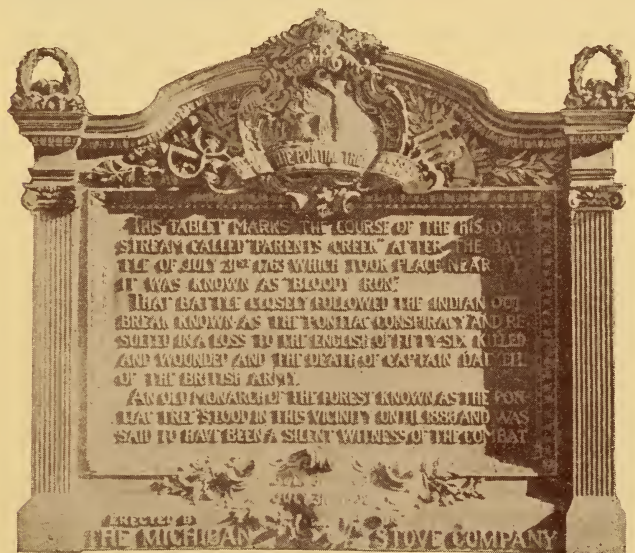 THE PONTIAC TREE
THIS TABLET MARKS THE COURSE OF THE HISTORIC
STREAM CALLED "PARENTS CREEK" AFTER THE BAT
TLE OF JULY 31ST 1763 WHICH TOOK PLACE NEAR IT
IT WAS KNOWN AS "BLOODY RUN."
THAT BATTLE CLOSELY FOLLOWED THE INDIAN OUT
BREAK KNOWN AS THE PONTIAC CONSPIRACY AND RE
SULTED IN A LOSS TO THE ENGLISH OF FIFTY-SIX KILLED
AND WOUNDED AND THE DEATH OF CAPTAIN DALYELL
OF THE BRITISH ARMY.
AN OLD MONARCH OF THE FOREST KNOWN AS THE PON
TIAC TREE STOOD IN THIS VICINITY UNTIL 1886 AND WAS
SAID TO HAVE BEEN A SILENT WITNESS OF THE COMBAT
JULY 31
ERECTED BY
THE MICHIGAN STOVE COMPANY